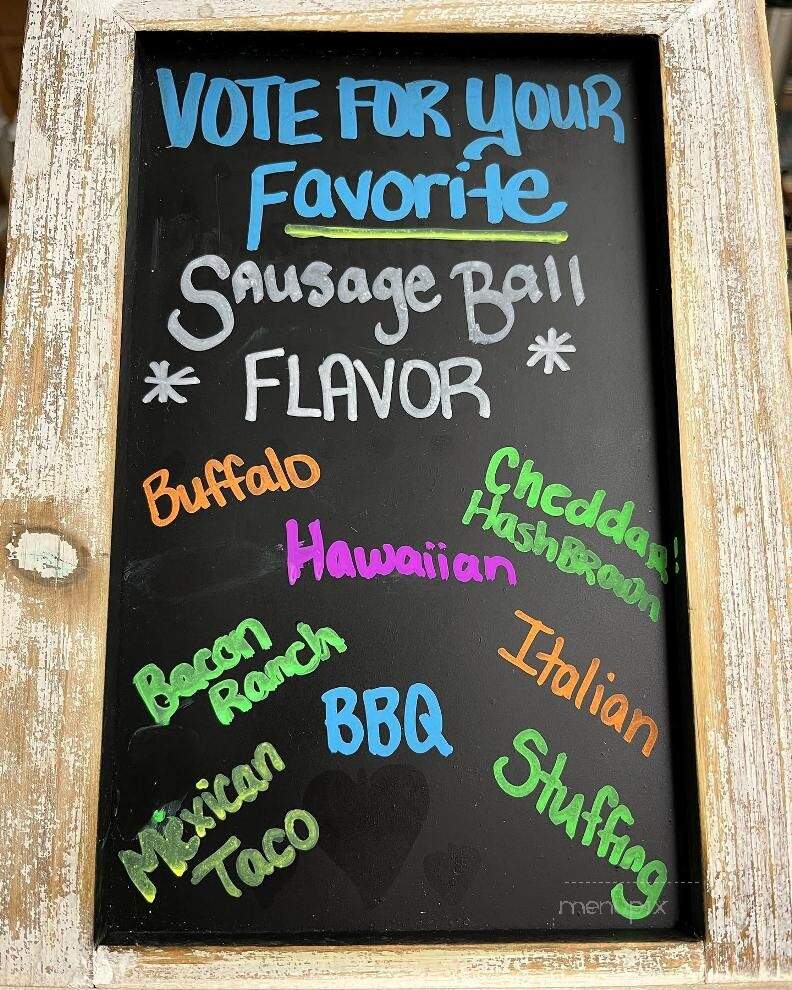 VOTE FOR YOUR
Favorite
Sausage Ball
* FLAVOR *
Buffalo
Cheddar!
HashBrown
Hawaiian
Bacon
Ranch
Italian
BBQ
Mexican
Taco
Stuffing
menupix